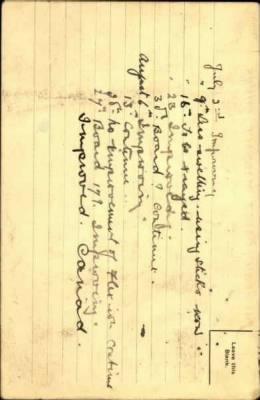 July 2nd Improving
" 9th Less swelling - using sticks now.
" 16th To be x rayed.
" 23 Improved.
" 30. Board? Continue.
August 6th Improving
" 13 Continue.
" 20th No improvement of flexion Continue
" 27th Board 179. Improving.
Improved. Canad.
Leave this
Blank.